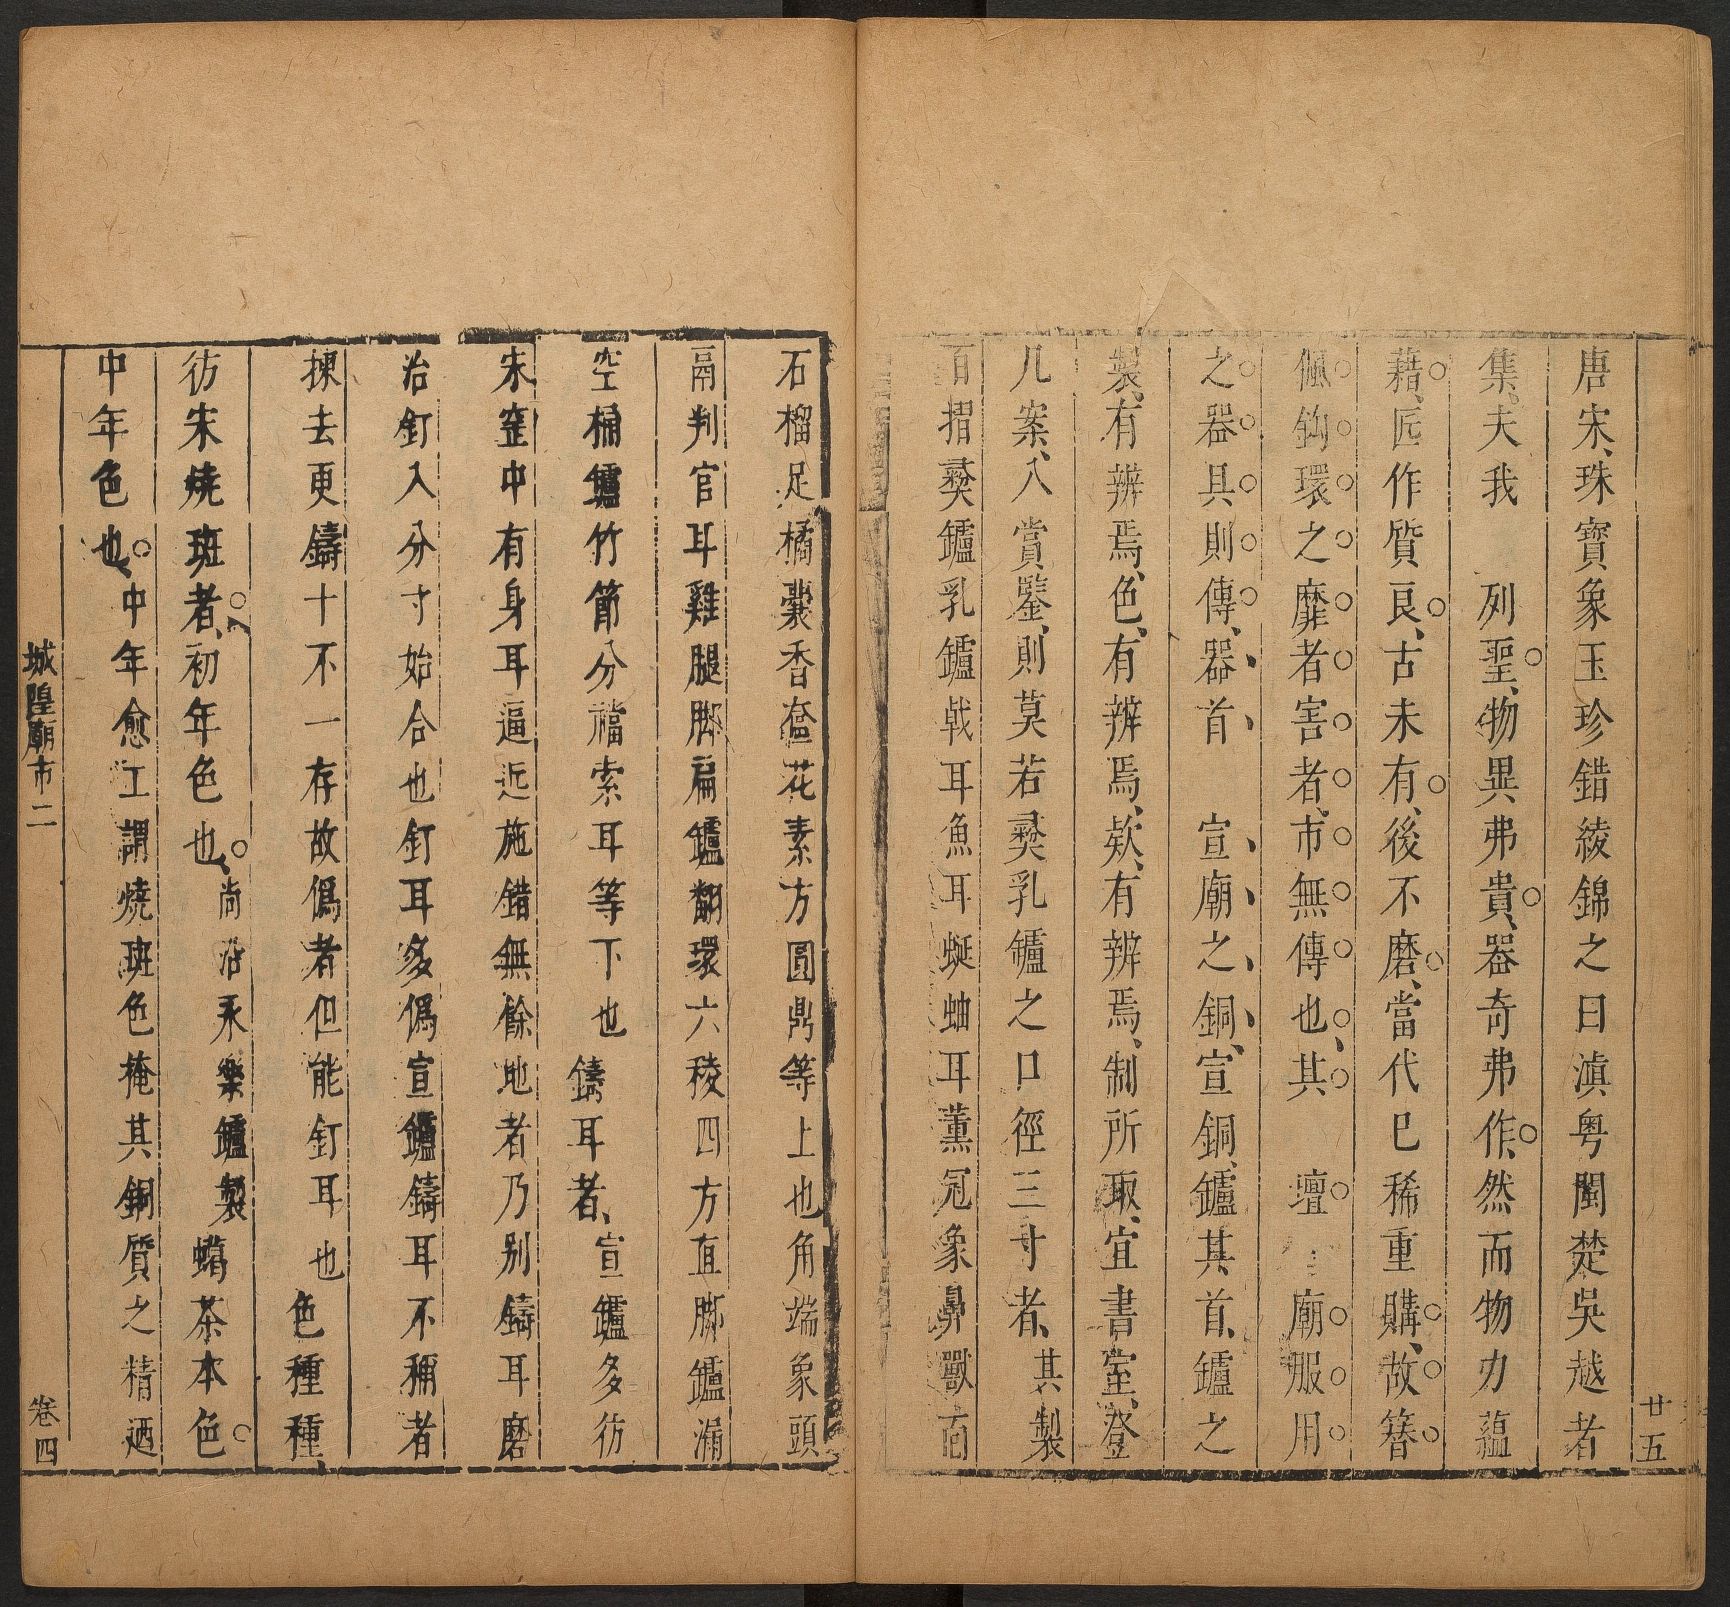 廿五
唐宋、珠寶象玉珍錯綾錦之曰滇粤閩楚吳越者
集、夫我　列聖、物異弗貴、器奇弗作、然而物力蘊
藉、匠作質良、古未有、後不磨、當代巳稀重購、故簪
佩鈎環之靡者害者、市無傳也、其　壇　廟服用
之器具則傳、器首　宣廟之銅、宣銅、鑪其首、鑪之
製、有辨焉、色、有辨焉、欵、有辨焉、制所取、宜書室、登
几案、入賞鑒、則莫若彜乳鑪之口徑三寸者、其製
百摺彜鑪乳鑪戟耳魚耳蜒蚰耳薰冠象鼻獸面
石榴足橘囊香奩花素方圓鼎等上也角端象頭
鬲判官耳雞腿脚扁鑪翻環六稜四方直脚鑪漏
空桶鑪竹節分襠索耳等下也鑄耳者、宣鑪多彷
宋窑中有身耳逼近施錯無餘地者乃别鑄耳磨
治釘入分寸始合也釘耳多僞宣鑪鑄耳不稱者
揀去更鑄十不一存故僞者但能釘耳也色種種、
彷宋燒斑者、初年色也、尚沿永樂鑪製蠟茶本色
中年色也、中年愈工謂燒斑色掩其銅質之精迺
城隍廟市二
卷四